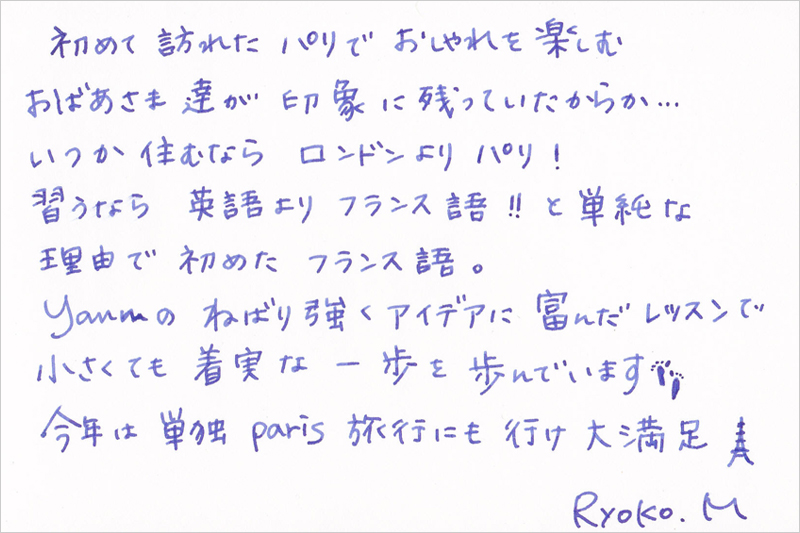 初めて 訪れた パリで おしゃれを 楽しむ
おばあさま 達が 印象 に 残っていたからか…
いつか 住むなら ロンドンより パリ！
習うなら 英語より フランス語!! と 単純な
理由で 初めた フランス語。
Yannの ねばり強く アイデアに 富んだ レッスンで
小さくても 着実な 一歩を 歩んでいます
今年は 単独 paris 旅行にも 行け 大満足
Ryoko. M